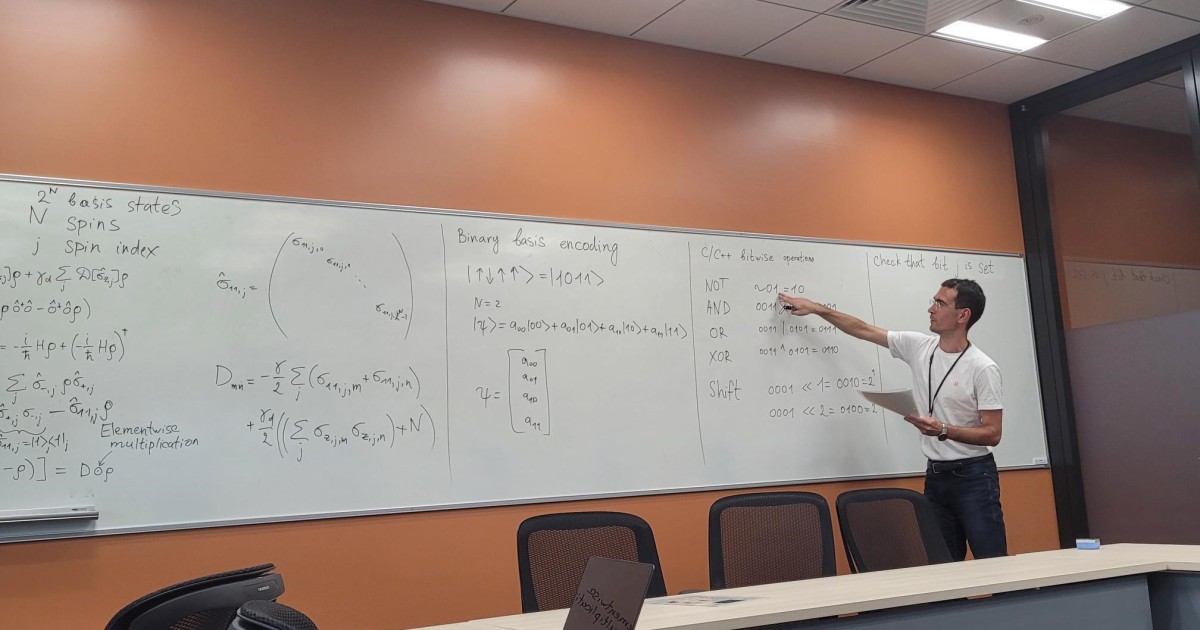 2^N basis states
N spins
j spin index
]ρ + γ_d Σ_j D[σ̂_{z,j}]ρ
= -i/ħ Hρ + (-i/ħ Hρ)^†
Σ_j σ̂_{-,j} ρ σ̂_{+,j}
- σ̂_{11,j} ρ
= |1⟩_j⟨1|_j
Elementwise
multiplication
-ρ)] = D⊙ρ
σ̂_{11,j} = ( σ_{11,j,0} σ_{11,j,1} ⋱ σ_{11,j,2^N-1} )
D_{mn} = -γ/2 Σ_j (σ_{11,j,m} + σ_{11,j,n})
+ γ_d/2 ((Σ_j σ_{z,j,m} σ_{z,j,n}) + N)
Binary basis encoding
|↑↓↑↑⟩ = |1011⟩
N = 2
|ψ⟩ = a_00|00⟩ + a_01|01⟩ + a_10|10⟩ + a_11|11⟩
ψ = [ a_00 a_01 a_10 a_11 ]
C/C++ bitwise operations
NOT ~01 = 10
AND 0011
OR 0011 | 0101 = 0111
XOR 0011 ^ 0101 = 0110
Shift 0001 << 1 = 0010 = 2^1
0001 << 2 = 0100 = 2
Check that bit j is set